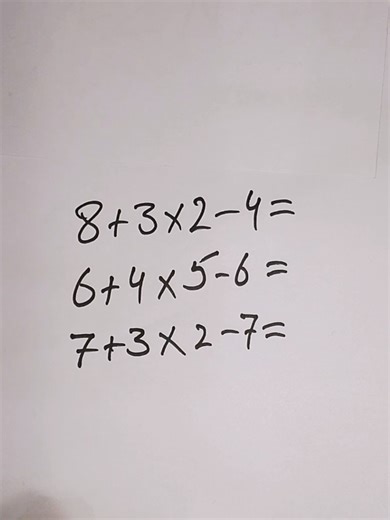 8+3×2-4=
6+4×5-6=
7+3×2-7=